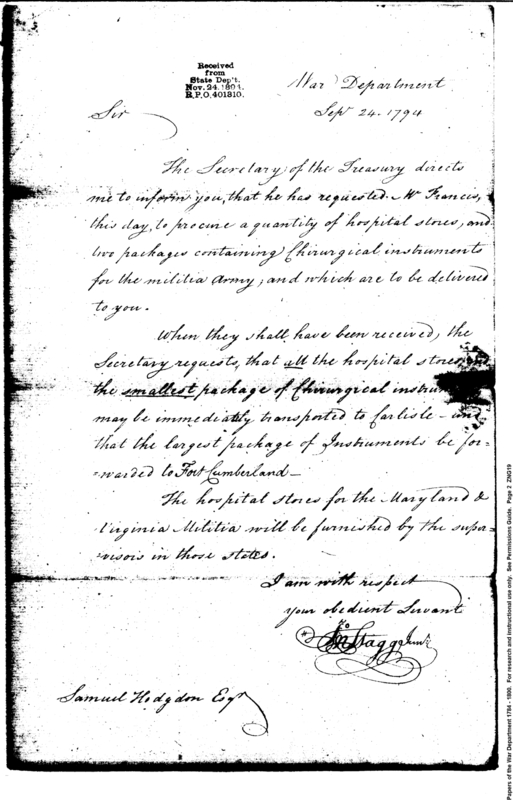 Received
from
State Dep't.
Nov. 24. 1894.
R.P.O. 401310.
War Department
Sepr 24. 1794
Sir
The Secretary of the Treasury directs
me to inform you, that he has requested Mr Francis,
this day, to procure a quantity of hospital stores, and
two packages containing Chirurgical instruments
for the militia Army, and which are to be delivered
to you.
When they shall have been received, the
Secretary requests, that all the hospital stores, and
the smallest package of Chirurgical instrum
may be immediatly transported to Carlisle — and
that the largest package of Instruments be for-
=warded to Fort Cumberland —
The hospital stores for the Maryland &
Virginia Militia will be furnished by the super-
visors in those states.
I am with respect
your obedient Servant
Jno Stagg Junr
Samuel Hodgdon Esqr
Papers of the War Department 1784 - 1800. For research and instructional use only. See Permissions Guide. Page 2 ZNG19